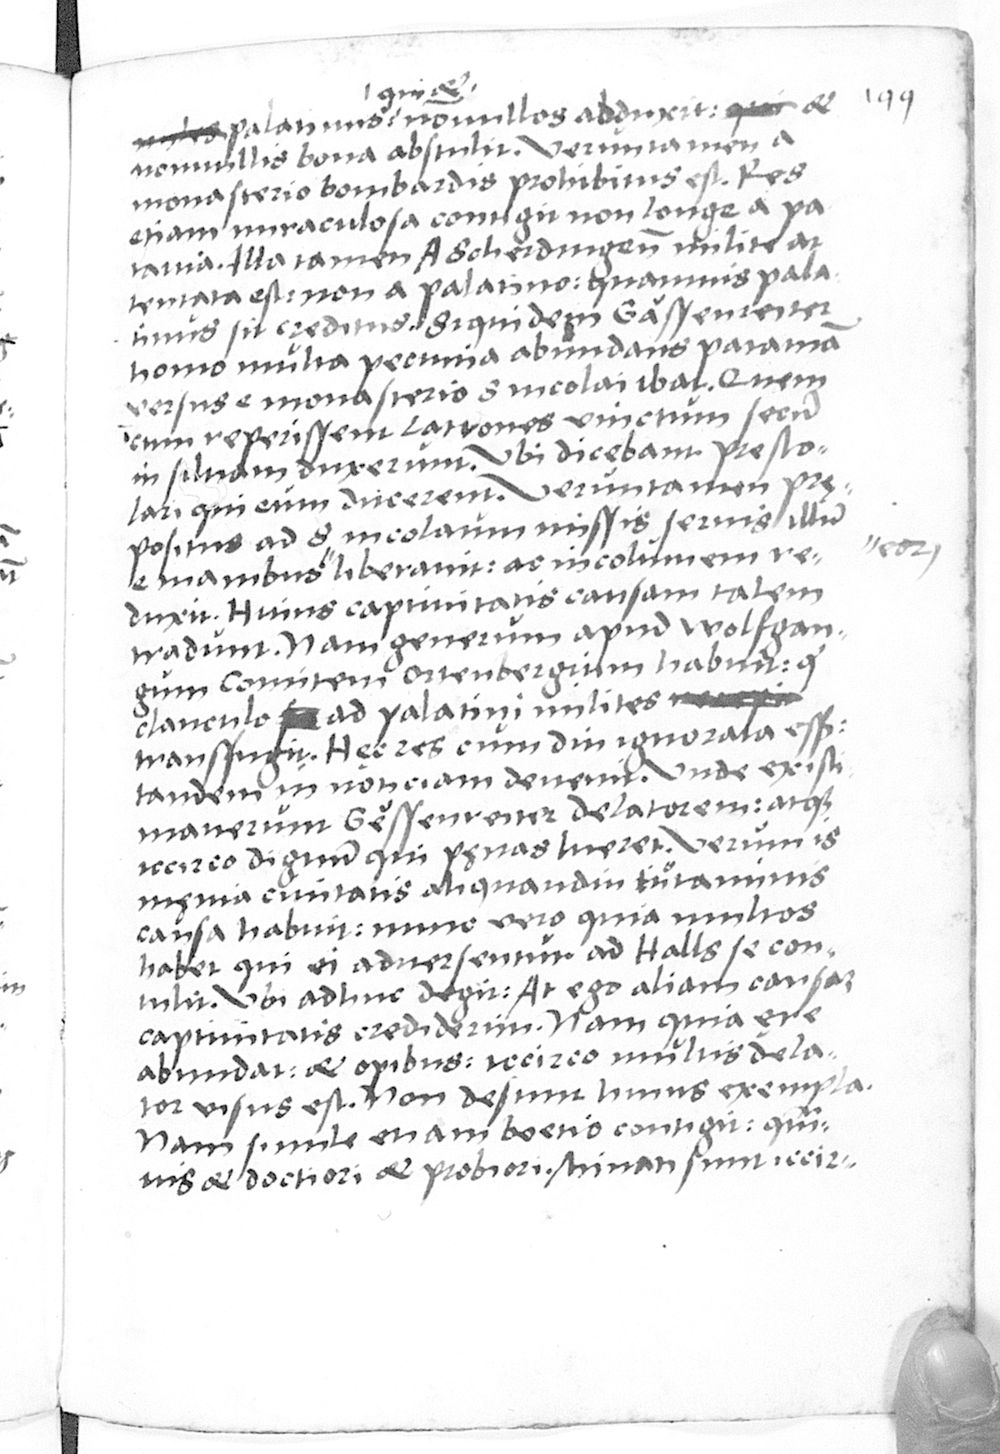 199
qui &
palatinus: no͞nullos adduxit: qui &
nonnullis bona abstulit. Veruntamen a
monasterio bombardis prohibitus est. Res
etiam miraculosa contigit non longe a pa
tauia. Illa tamen A Scherdingen̄ milite at
tentata est: non a palatino: quamuis pala
tinus sit creditus. Siquidem Gässenreiter
homo multa pecunia abundans patauiā
versus e monasterio S nicolai ibat. Quem
cum reperissent latrones vinctum secū
in siluam duxerunt. Vbi dicebant presto-
lari qui eum ducerent. Veruntamen prę-
positus ad S nicolaum missis seruis illū
e manibus" liberauit: ac incolumem re-
"eor,
duxit. Huius captiuitatis causam talem
tradunt. Nam generum apud Wolfgan-
gum Comitem Ortenbergium habuit: q
clanculo ad palatini milites
transfugit. Hęc res cum diu ignorata esset:
tandem in noticiam deuenit. Vnde existi
mauerunt Gessenreiter delatorem: atq
iccirco dignū qui pęnas lueret. Verum is
męnia ciuitatis aliquandiu tutaminis
causa habuit: nunc vero quia multos
habet qui ei aduersentur ad Halls se con-
tulit. Vbi adhuc degit: At ego aliam causaz
captiuitatis crediderim. Nam quia ere
abundat: & opibus: iccirco multis dela-
tor visus est. Non desunt huius exempla.
Nam simile etiam boetio contigit: quīi-
uis & doctiori & probiori. Minati sunt iccir-